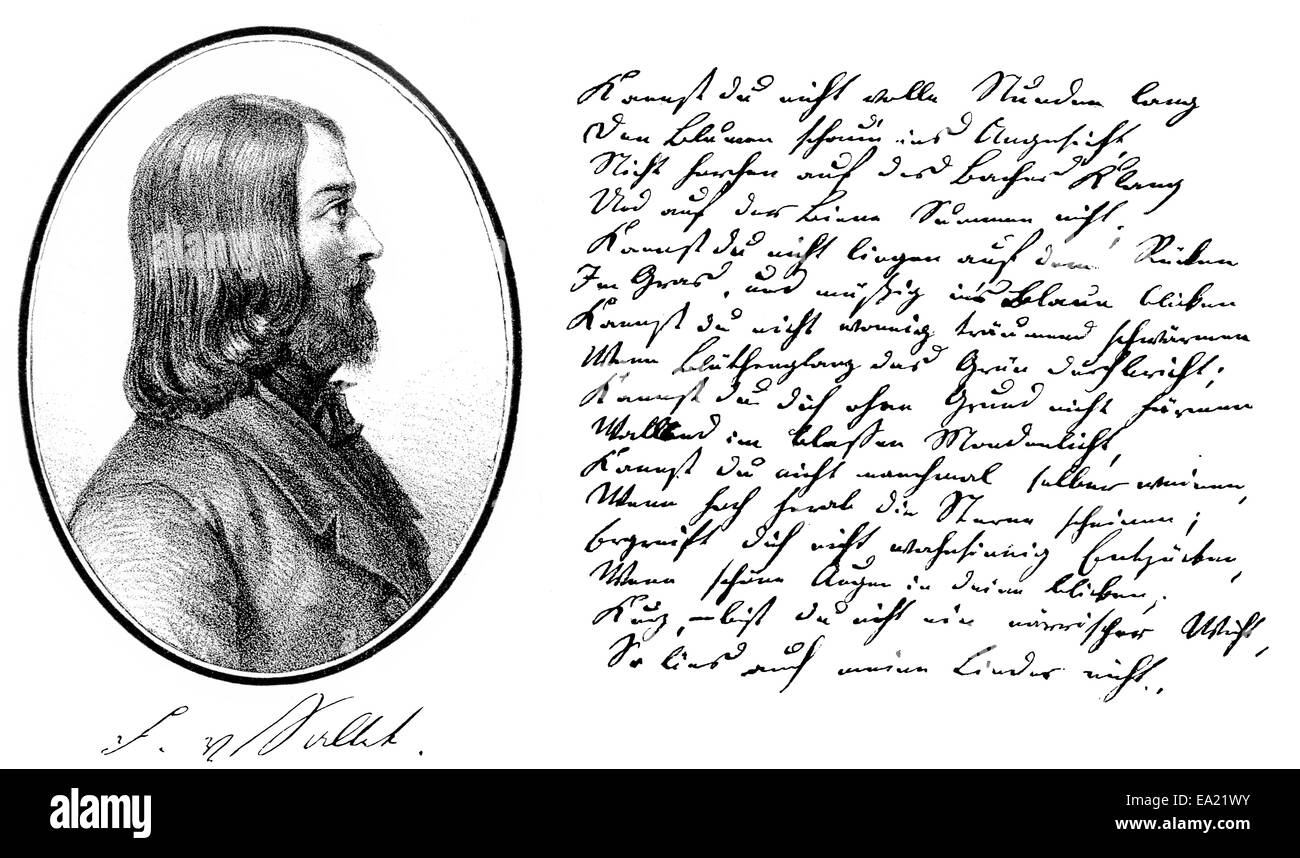 Kannst du nicht volle Stunden lang
Den Blumen schaun ins Angesicht,
Nicht horchen auf des Baches Klang
Und auf der Biene Summen nicht;
Kannst du nicht liegen auf dem Rücken
Im Gras, und müßig ins Blaue blicken
Kannst du nicht wonnig träumend schwärmen
Wenn Blüthenglanz das Grün durchbricht;
Kannst du dich ohne Grund nicht härmen
Wallend im blassen Mondenlicht,
Kannst du nicht manchmal selber weinen,
Wenn hoch herab die Sterne scheinen;
Ergreift dich nicht wahnsinnig Entzücken,
Wenn schöne Augen in deine blicken;
Kurz, bist du nicht ein närrischer Wicht,
So lies auch meine Lieder nicht.
F. v Sallet.
alamy
a alamy stock photo
EA21WY
www.alamy.com